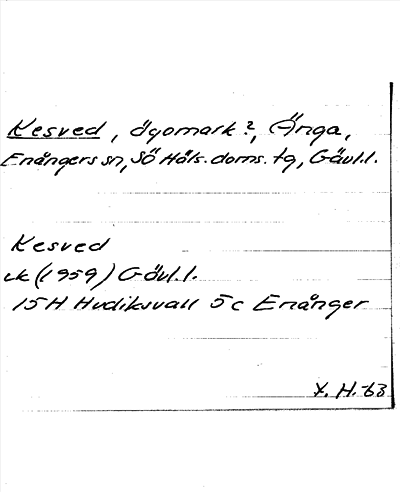 Kesved, ägomark?, Änga,
Enångers sn, Sö Häls. doms. tg, Gävl.l.
Kesved
ek (1959) Gävl.l.
15H Hudiksvall 5c Enånger
H.-63